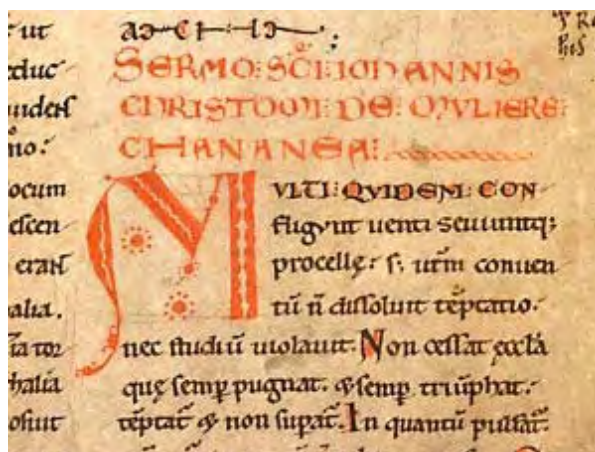 ut
uidenſ
ocum
eſcen
eranſ
alia.
ia tor
halia
oſuit
SERMO: SC̄I: IOHANNIS
CHRISTOOMI: DE: MVLIERE:
CHANANEA:
MVLTI: QVIDEM: CON
fligunt uenti seuiuntq;
procellę: s; ur̄m conuen
tū n̄ diſſoluit tēptatio.
nec ſtudiū uiolauit. Non ceſſat eccl̄a
quę ſemp̲ pugnat. & ſemp̲ triūphat.
tēptat̄ & non ſupat̄. In quantū pulſat̄.